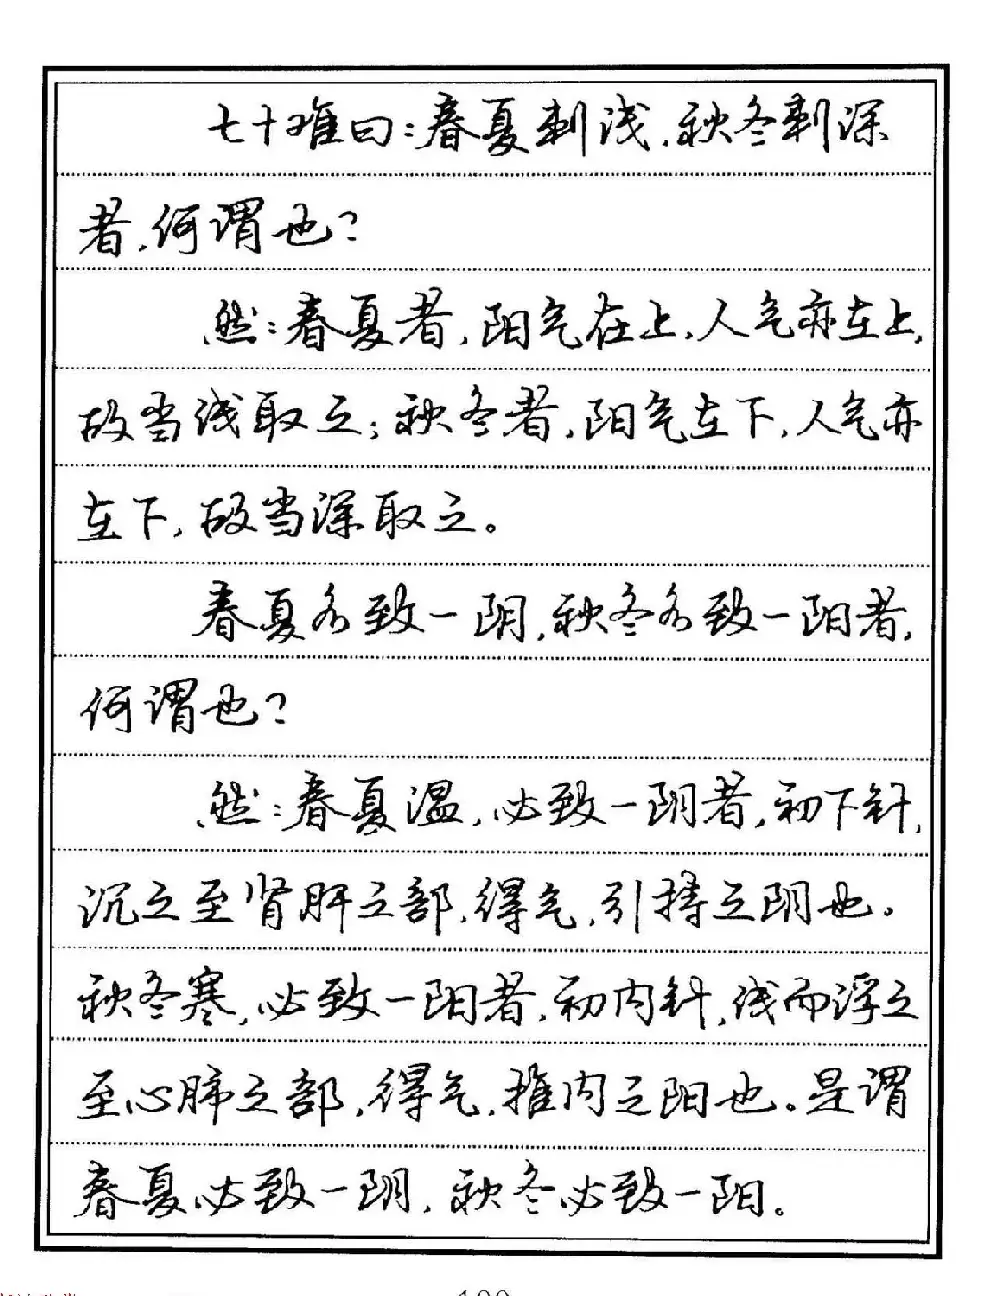 七十难曰:春夏刺浅,秋冬刺深
者,何谓也?
然:春夏者,阳气在上,人气亦在上,
故当浅取之;秋冬者,阳气在下,人气亦
在下,故当深取之。
春夏各致一阴,秋冬各致一阳者,
何谓也?
然:春夏温,必致一阴者,初下针,
沉之至肾肝之部,得气,引持之阴也。
秋冬寒,必致一阳者,初内针,浅而浮之
至心肺之部,得气,推内之阳也。是谓
春夏必致一阴,秋冬必致一阳。